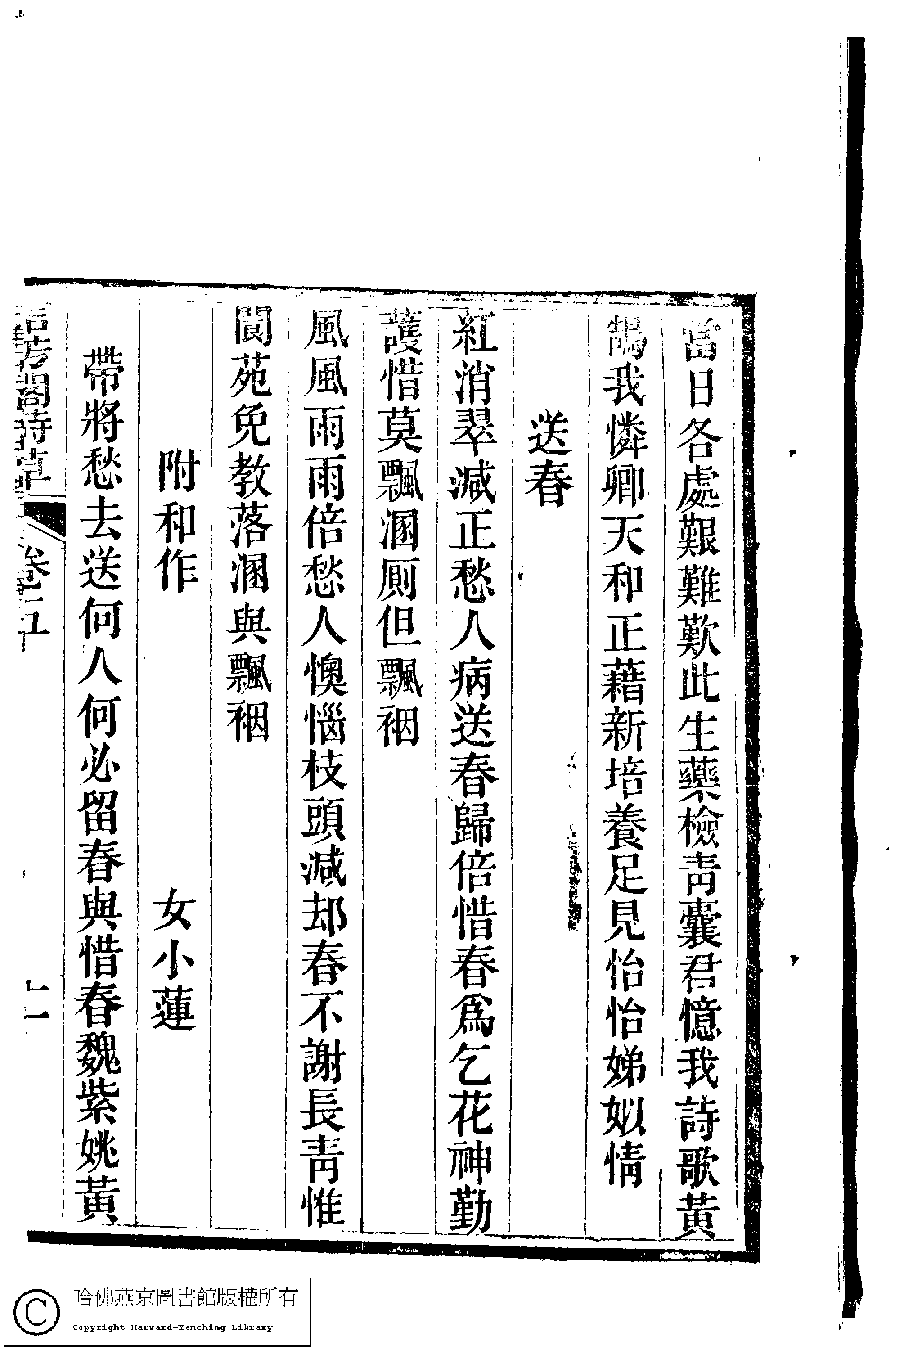 當日各處艱難歎此生藥檢靑囊君憶我詩歌黃
鵠我憐卿天和正藉新培養足見怡怡娣姒情
送春
紅消翠減正愁人病送春歸倍惜春爲乞花神勤
護惜莫飄溷厠但飄裀
風風雨雨倍愁人懊惱枝頭減却春不謝長靑惟
閬苑免教落溷與飄裀
附和作　女小蓮
帶將愁去送何人何必留春與惜春魏紫姚黃
芳閣詩草　卷五　十一
哈佛燕京圖書館版權所有
Copyright Harvard-Yenching Library